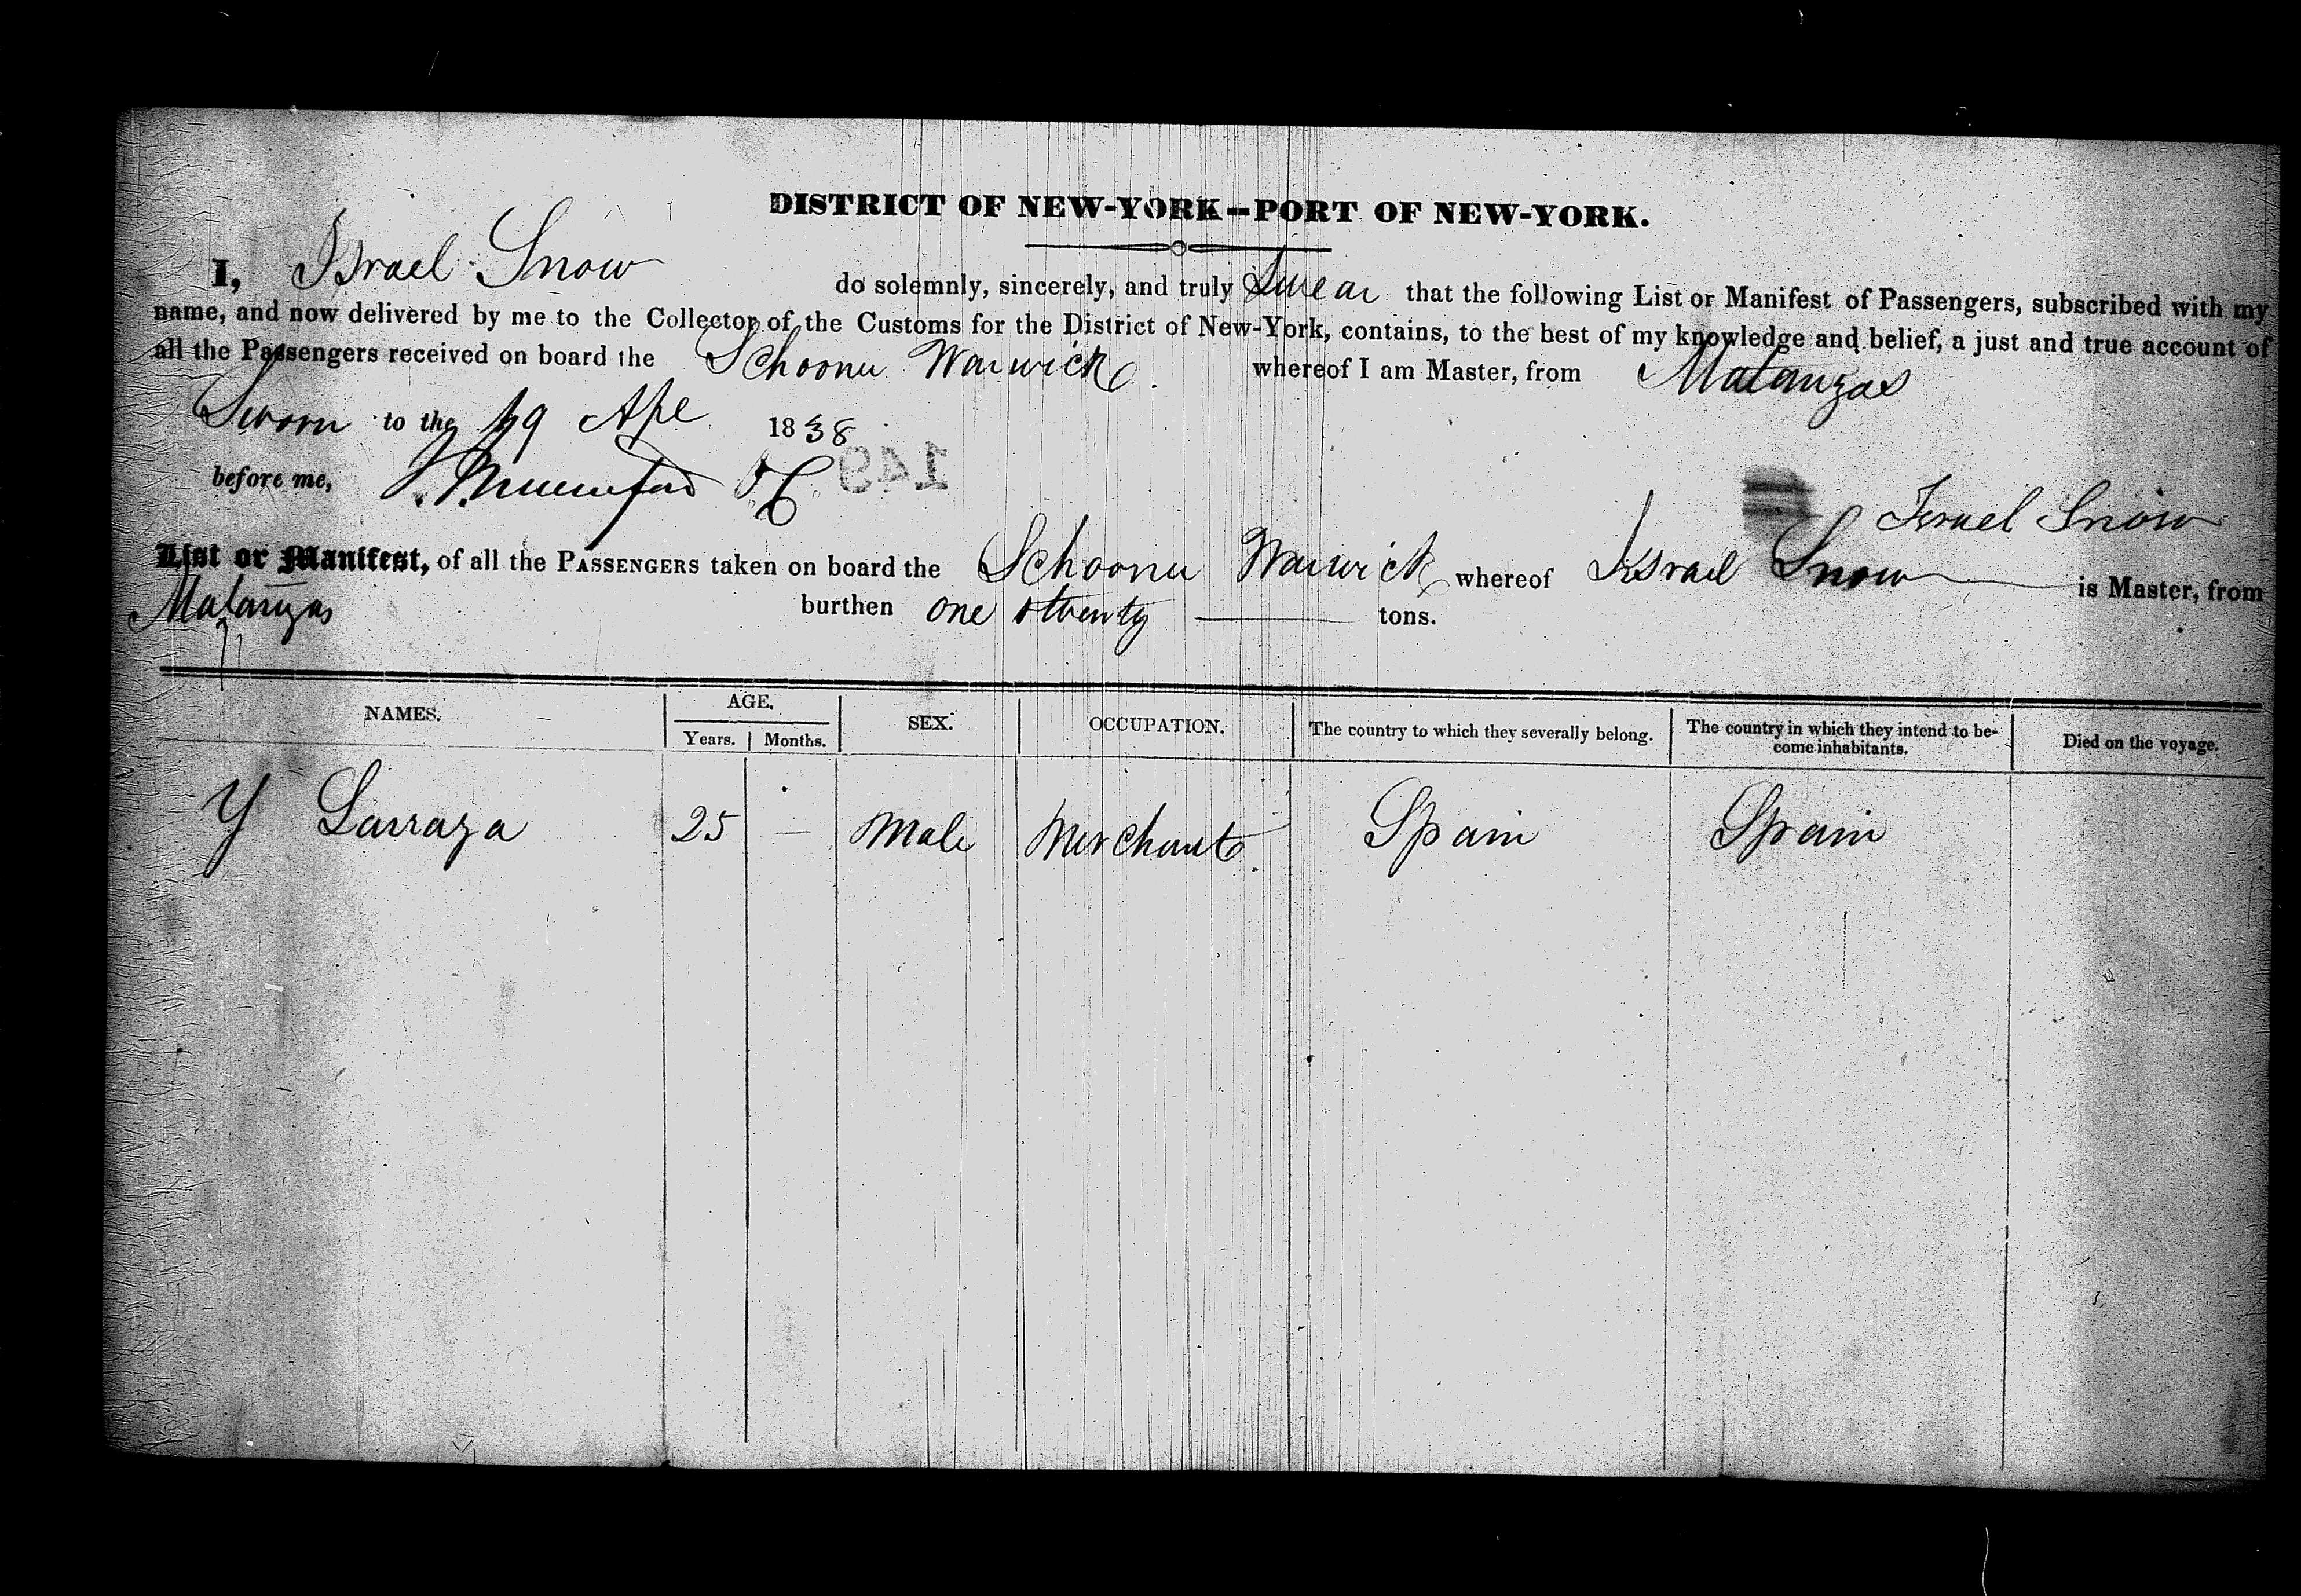 DISTRICT OF NEW-YORK--PORT OF NEW-YORK.
I, Israel Snow do solemnly, sincerely, and truly Swear that the following List or Manifest of Passengers, subscribed with my
name, and now delivered by me to the Collector of the Customs for the District of New-York, contains, to the best of my knowledge and belief, a just and true account of
all the Passengers received on board the Schooner Warwick whereof I am Master, from Matanzas
Sworn to the 19 Apl 1838
149
before me, Mumford DC
Israel Snow
List or Manifest, of all the PASSENGERS taken on board the Schooner Warwick whereof Israel Snow is Master, from
Matanzas burthen one twenty tons.
NAMES. AGE. SEX. OCCUPATION. The country to which they severally belong. The country in which they intend to be- Died on the voyage.
Years. Months. come inhabitants.
Y Larraza 25 — Male Merchant Spain Spain